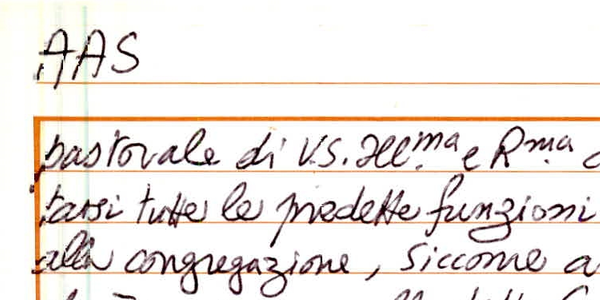 AAS
pastorale di V.S. Ill.ma e R.ma
tarsi tutte le predette funzioni
alla congregazione, siccome a